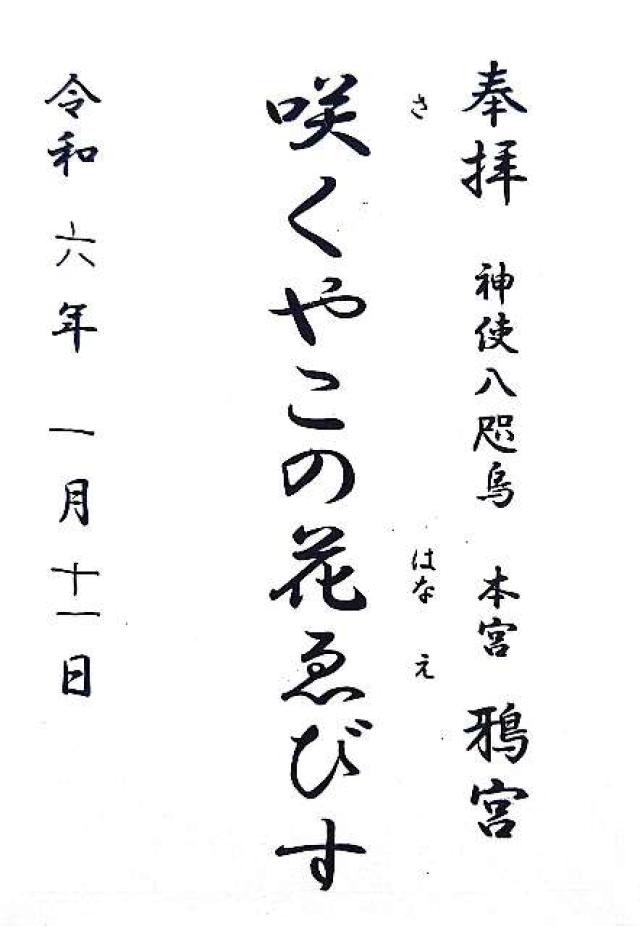 奉拝 神使八咫烏 本宮 鴉宮
さ はな え
咲くやこの花ゑびす
令和 六年 一月 十一日